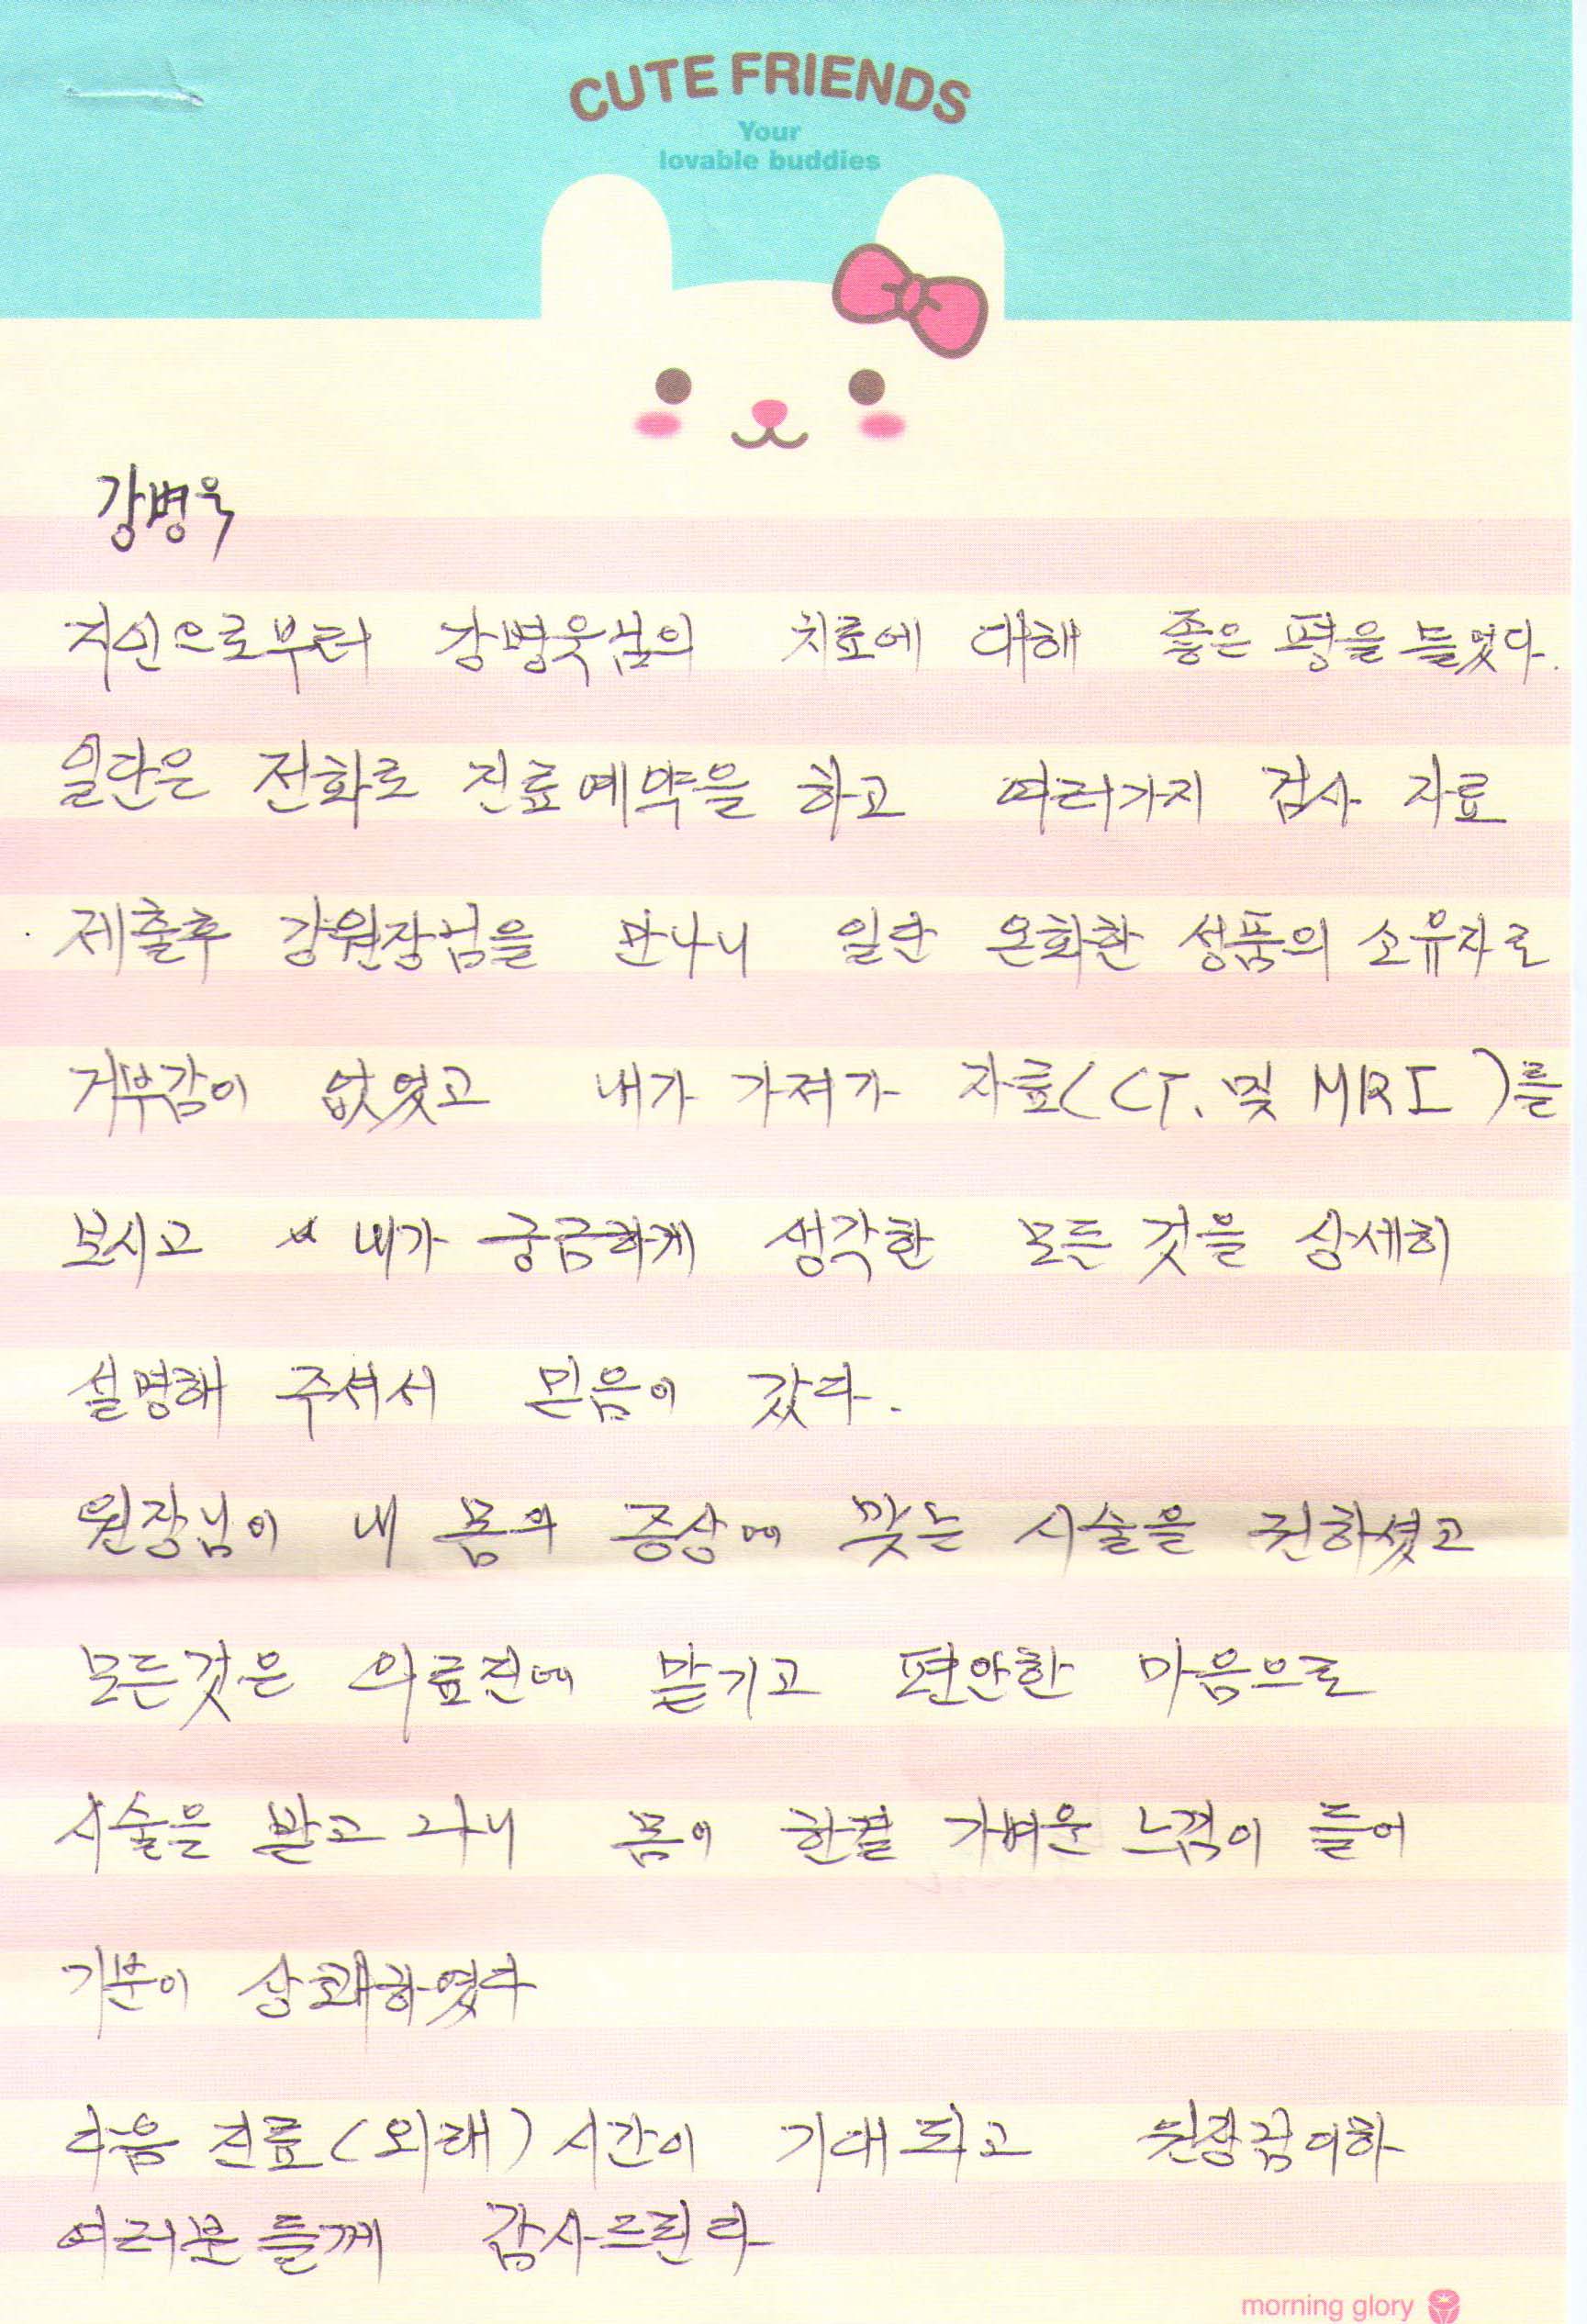 CUTE FRIENDS
Your
lovable buddies
강병욱
지인으로부터 강병욱님의 치료에 대해 좋은 평을 들었다.
일단은 전화로 진료예약을 하고 여러가지 검사 자료
제출후 강원장님을 만나니 일단 온화한 성품의 소유자로
거부감이 없었고 내가 가져가 자료(CT. 및 MRI)를
보시고 내가 궁금하게 생각한 모든 것을 상세히
설명해 주셔서 믿음이 갔다.
원장님이 내 몸의 증상에 맞는 시술을 권하셨고
모든것은 의료진에 맡기고 편안한 마음으로
시술을 받고 나니 몸이 한결 가벼운 느낌이 들어
기분이 상쾌하였다
다음 진료(외래) 시간이 기대되고 이하
여러분들께 감사드린다
morning glory